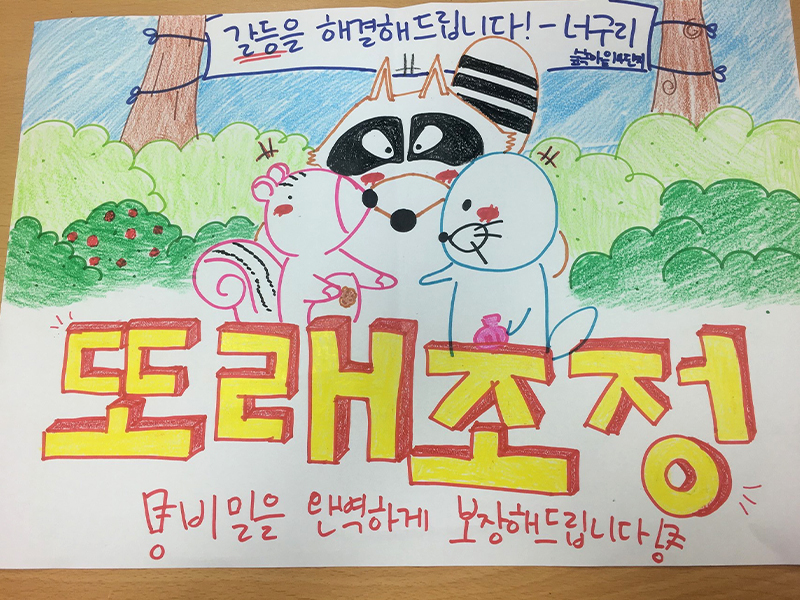 갈등을 해결해드립니다! - 너구리
숲속마을
또래조정
비밀을 완벽하게 보장해드립니다